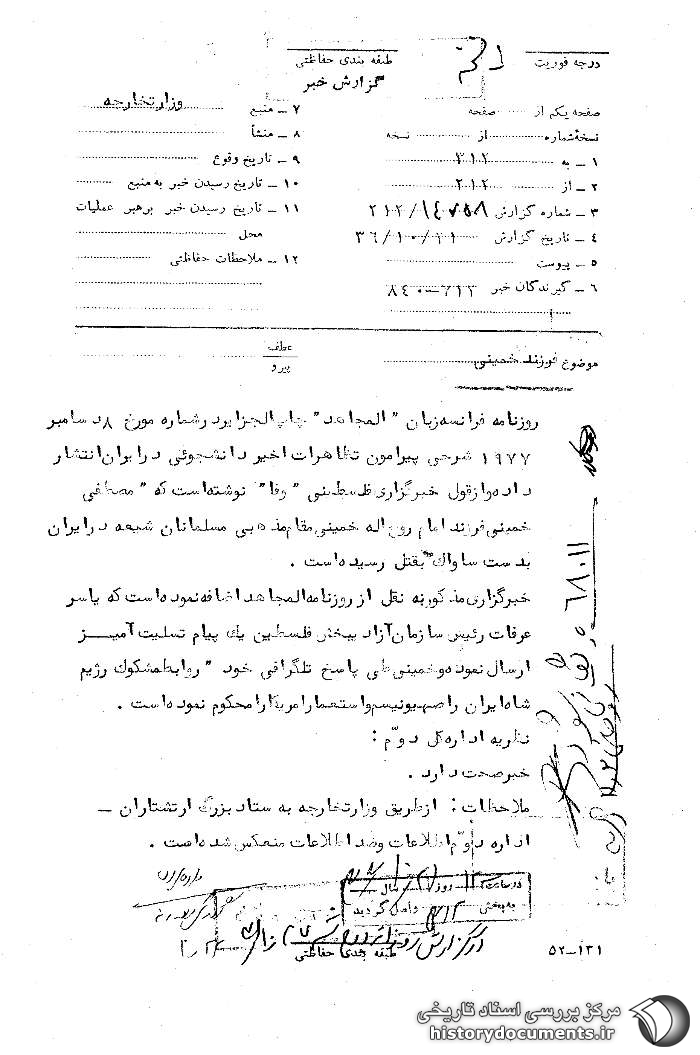 درجه فوریت
طبقه بندی حفاظتی
گزارش خبر
صفحه یکم از صفحه
نسخه شماره از نسخه
۱ ـ به ۳۱۲
۲ ـ از ۲۱۲
۳ ـ شماره گزارش ۲۱۲/۱۴۷۵۸
۴ ـ تاریخ گزارش ۳۶/۱۰/۲۱
۵ ـ پیوست
۶ ـ گیرندگان خبر ۷۱۲-۸۴۰
۷ ـ منبع وزارتخارجه
۸ ـ منشأ
۹ ـ تاریخ وقوع
۱۰ ـ تاریخ رسیدن خبر به منبع
۱۱ ـ تاریخ رسیدن خبر برهبر عملیات
محل
۱۲ ـ ملاحظات حفاظتی
موضوع فرزند خمینی
عطف
پیرو
روزنامه فرانسه زبان "المجاهد" چاپ الجزایر در شماره مورخ ۸ دسامبر
۱۹۷۷ شرحی پیرامون تظاهرات اخیر دانشجوئی در ایران انتشار
داده و از قول خبرگزاری فلسطینی "وفا" نوشته است که "مصطفی
خمینی فرزند امام روح اله خمینی مقام مذهبی مسلمانان شیعه در ایران
بدست ساواک" بقتل رسیده است .
خبرگزاری مذکور به نقل از روزنامه المجاهد اضافه نموده است که یاسر
عرفات رئیس سازمان آزاد یبخش فلسطین یک پیام تسلیت آمیز
ارسال نموده و خمینی طی پاسخ تلگرافی خود "روابط مشکوک رژیم
شاه ایران را صهیونیسم و استعمار امریکا را محکوم نموده است .
نظریه اداره کل دوّم :
خبر صحت دارد .
ملاحظات : از طریق وزارتخارجه به ستاد بزرگ ارتشتاران ـ
اداره دوّم اطلاعات و ضد اطلاعات منعکس شده است .
در ساعت روز سال
به بخش ۳۱۲ واصل گردید
طبقه بندی حفاظتی
۵۲-۱۳۱
مرکز بررسی اسناد تاریخی
historydocuments.ir